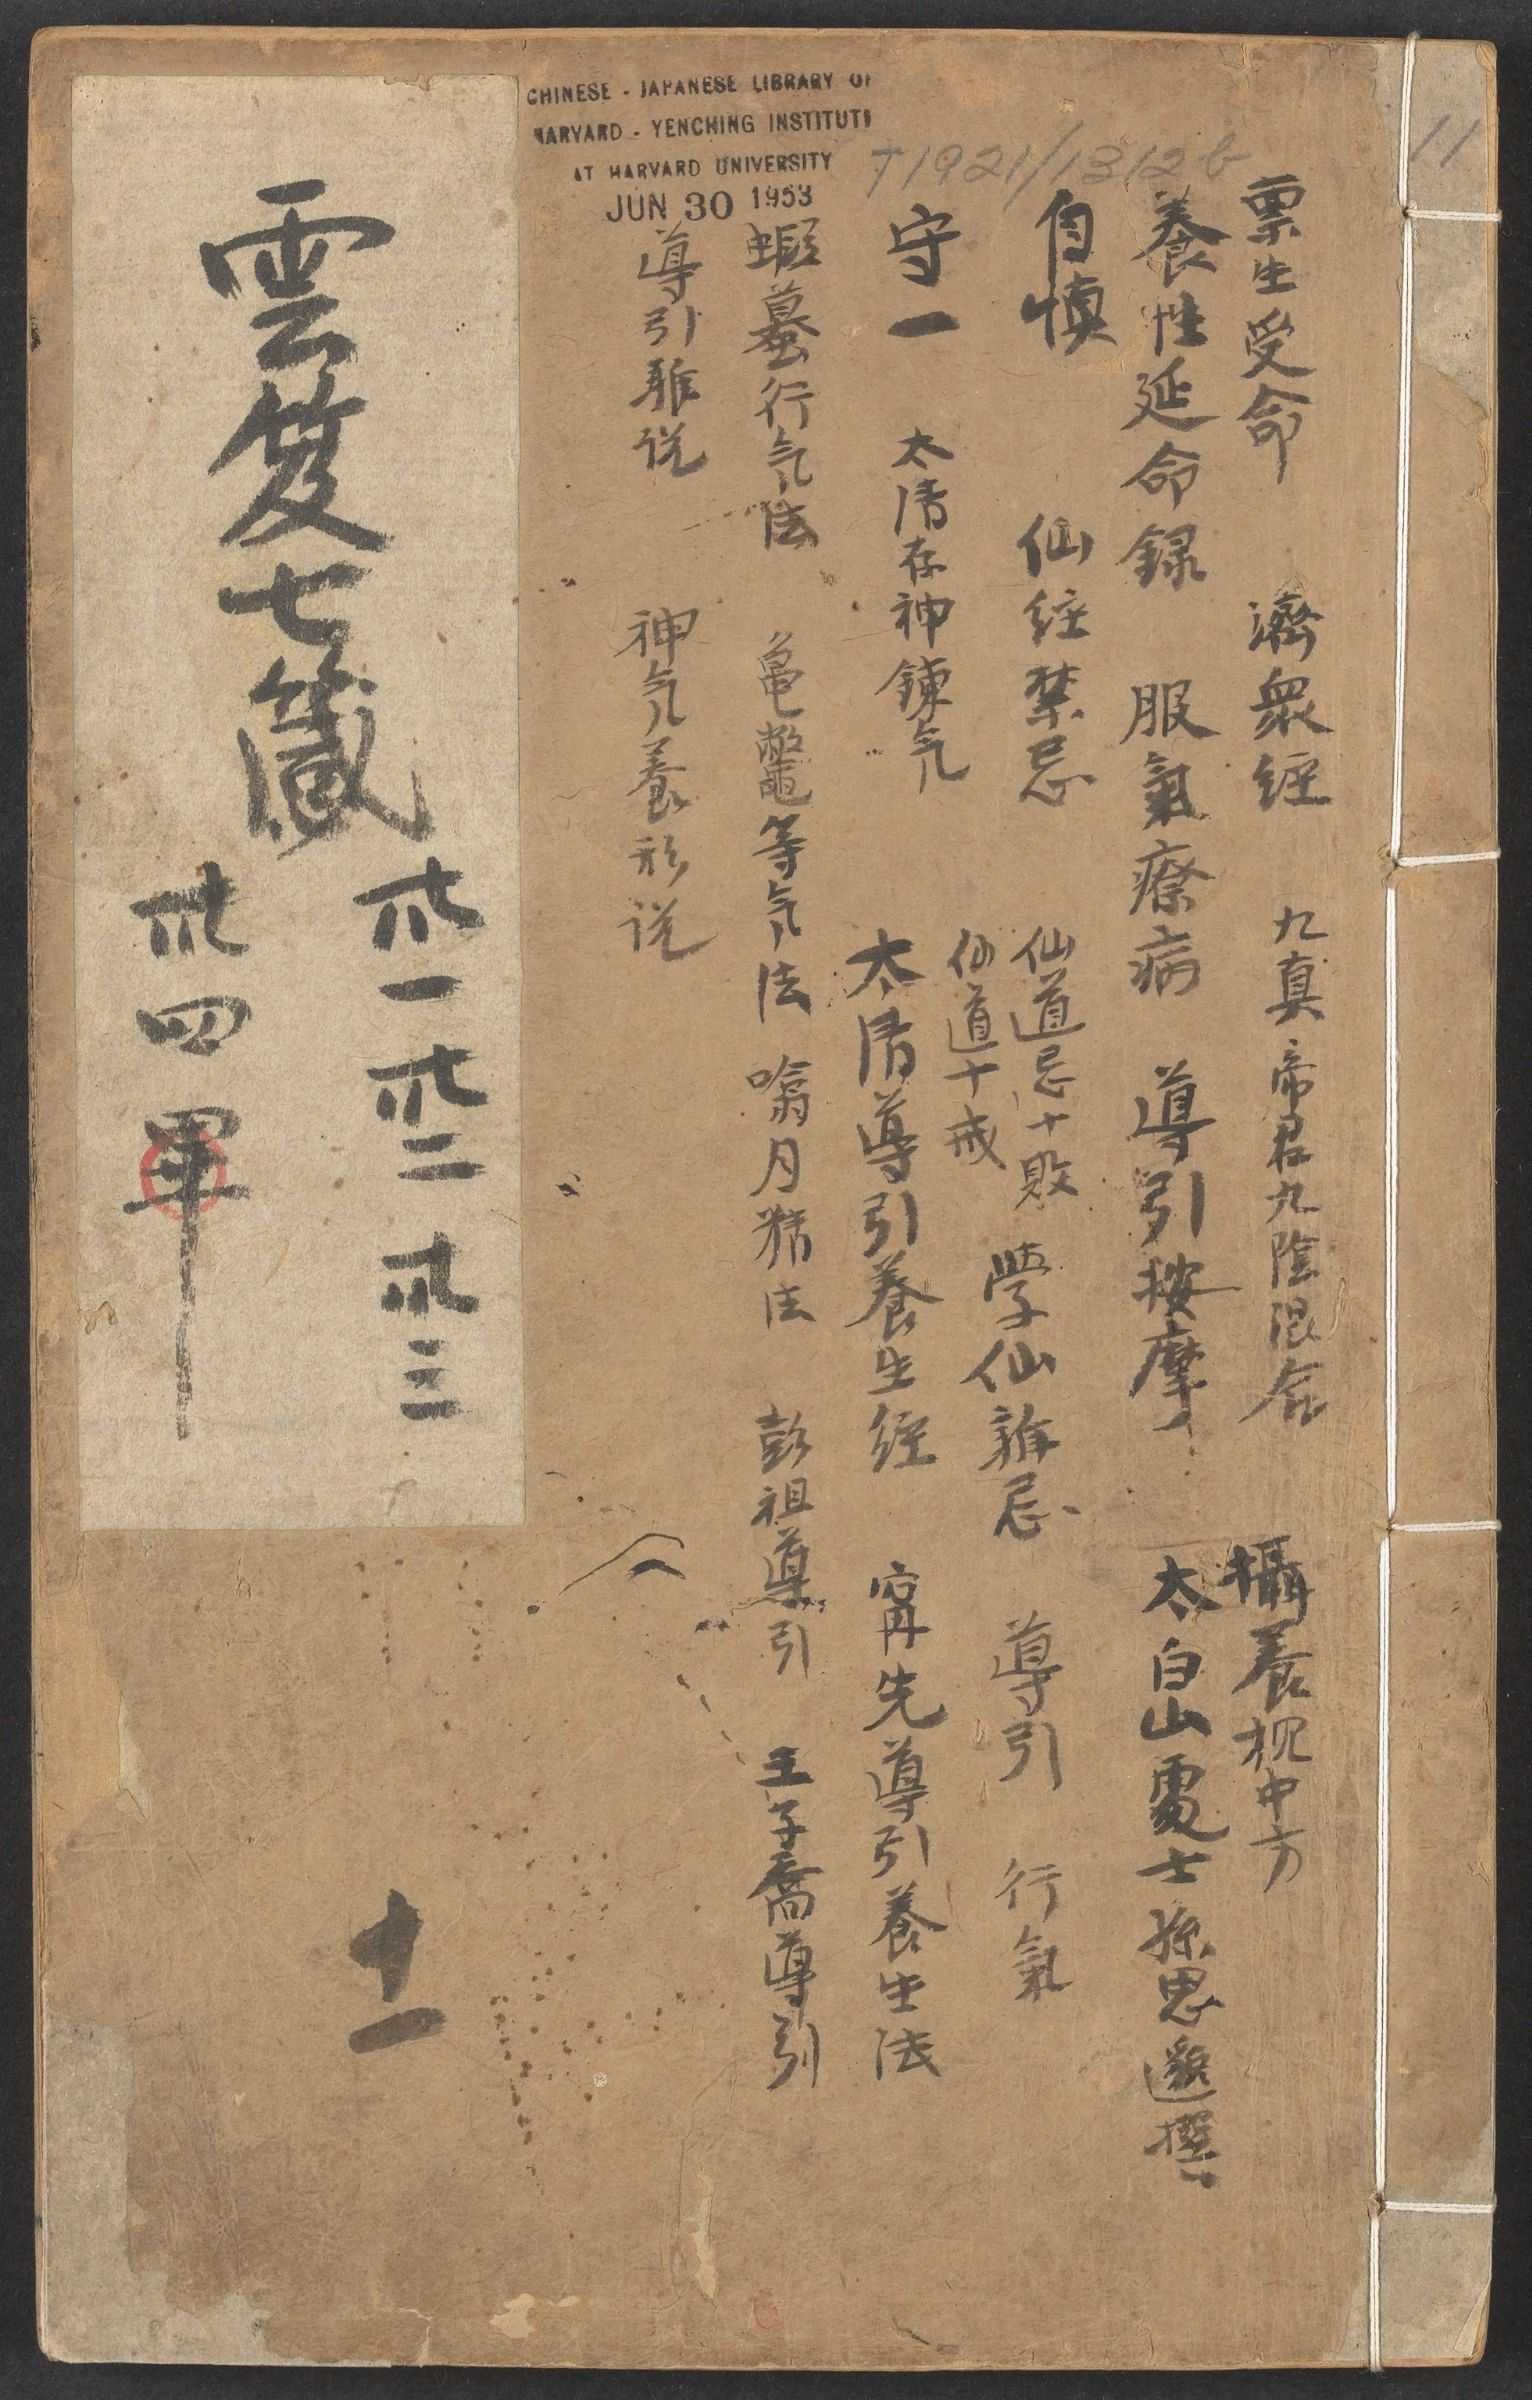 CHINESE - JAPANESE LIBRARY OF
HARVARD - YENCHING INSTITUTE
AT HARVARD UNIVERSITY
JUN 30 1953
T1921/1312b
11
稟生受命 濟衆經 九真帝君九陰混合 攝養枕中方
養性延命録 服氣療病 導引按摩 太白山處士孫思邈撰
自慎 仙經禁忌 仙道忌十敗 仙道十戒 學仙雜忌 導引 行氣
守一 太清存神鍊气 太清導引養生經 甯先導引養生法
蝦蟇行气法 龜鼈等气法 噏月精法 彭祖導引 王子喬導引
導引雜说 神气養形说
雲笈七籖
卅一 卅二 卅三
卅四 畢
十一